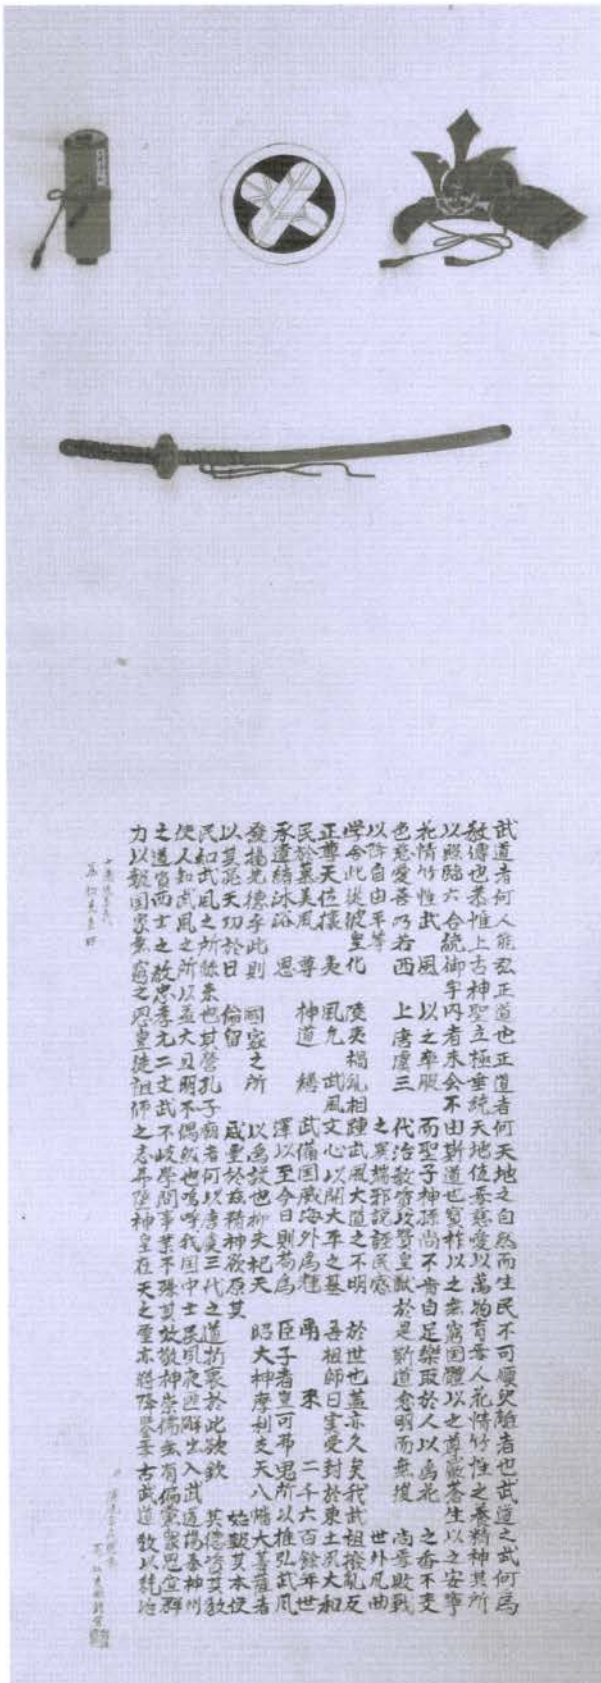 武道者何人能弘正道也正道者何天地之自然而生民不可須臾離者也武道之武何為
教傳也恭惟上古神聖立極垂統天地位焉慈愛以萬物育焉人花情竹性之養精神其所
以照臨六合統御宇内者未会不由斯道也寶祚以之無窮国體以之尊嚴蒼生以之安寧
花情竹性武 風 以之率服 而聖子神孫尚不肯自足樂取於人以為花 之香不变
色慈愛善乃若西 上唐虞三 代治教資以賛皇猷於是斯道愈明而無復 尚焉敗戰
以降自由平等 之異端邪説誣民惑 世外凡曲
学舍此從彼皇化 陵夷禍乱相 踵武風大道之不明 於世也蓋亦久矣我武祖撥乱反
正尊天位攘 夷 風允 武風 文心以開大平之基 吾祖師曰実受封於東土夙大和
民於慕美風 尊 神道 繕 武備国威海外為輝 勇 来 二千六百餘年世
承遺緒沐浴 恩 澤以至今日則苟為 臣子者豈可弗思所以推弘武風
發揚先德乎此則 國家之所 以為設也抑夫祀天 昭大神摩利支天八幡大菩薩者
以其亮天功於日 倫留 威霊於茲精神欲原其 始報其本使
民知武風之所繇来也其營孔子廟者何以唐虞三代之道折衷於此欲欽 其德資其教
使人知武風之所以益大且明不偶然也嗚呼我国中士民夙夜匪懈出入武道場奉神州
之道資西土之教忠孝无二文武不岐學問事業不殊其效敬神崇儒無有偏黨衆思宜群
力以報国家無窮之恩豈徒祖師之志弗墜神皇在天之霊亦將降鑒焉古武道 教以統治